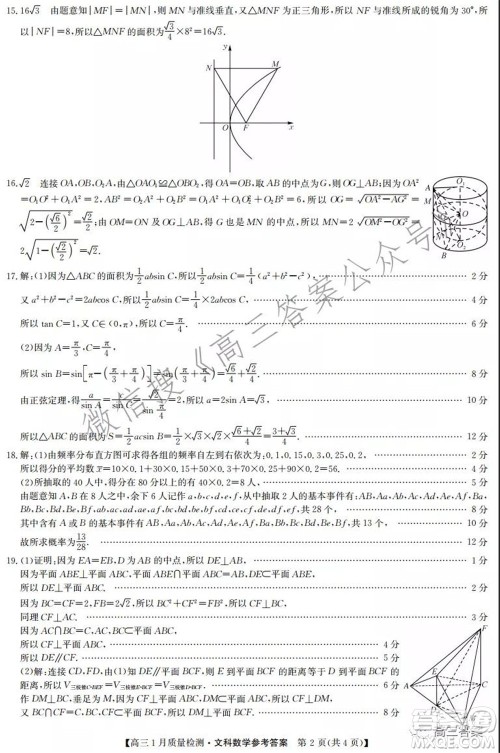 15. 16√3 由题意知|MF|=|MN|,则 MN 与准线垂直,又△MNF 为正三角形,所以 NF 与准线所成的锐角为 30°,所
以|NF|=8,所以△MNF 的面积为√3/4×8²=16√3.
y
N
M
O
F
x
16. √2 连接 OA,OB,O₂A,由△OAO₁≌△OBO₂,得 OA=OB,取 AB 的中点为 G,则 OG⊥AB;因为 OA²
√(2-(√6/2)²)=√2/2;由 OM=ON 及 OG⊥AB,得 G 也是 MN 的中点,所以 MN=2√(OM²-OG²)=
2√(1-(√2/2)²)=√2.
A
M
N
B
O₁
O
O₂
17. 解:(1)因为△ABC 的面积为1/2 ab sin C,所以1/2 ab sin C=1/4(a²+b²-c²), 2 分
又 a²+b²-c²=2ab cos C,所以1/2 ab sin C=1/4×2ab cos C, 4 分
所以 tan C=1,又 C∈(0,π),所以 C=π/4. 6 分
(2)因为 A=π/3,C=π/4,
所以 sin B=sin[π-(π/3+π/4)]=sin(π/3+π/4)=(√6+√2)/4. 8 分
由正弦定理,得 a/sin A=c/sin C=√2/(√2/2)=2,所以 a=2sin A=√3, 10 分
所以△ABC 的面积为 S=1/2 ac sin B=1/2×√3×√2×(√6+√2)/4=(3+√3)/4. 12 分
18. 解:(1)由频率分布直方图可求得各组的频率自左到右依次为:0.1,0.15,0.3,0.25,0.2, 2 分
所以得分的平均数 x̄=10×0.1+30×0.15+50×0.3+70×0.25+90×0.2=56. 4 分
(2)所抽取的 40 人中,得分在 80 分以上的有 40×0.2=8 人. 6 分
由题意知 A,B 在 8 人之中,余下 6 人记作 a,b,c,d,e,f,从中抽取 2 人的基本事件有:AB,Aa,Ab,Ac,Ad,Ae,Af,Ba,
Bb,Bc,Bd,Be,Bf,ab,ac,ad,ae,af,bc,bd,be,bf,cd,ce,cf,de,df,ef,共 28 个, 8 分
其中含有 A 或 B 的基本事件有 AB,Aa,Ab,Ac,Ad,Ae,Af,Ba,Bb,Bc,Bd,Be,Bf,共 13 个, 10 分
故所求概率为13/28. 12 分
19. (1)证明:因为 EA=EB,D 为 AB 的中点,所以 DE⊥AB, 1 分
因为平面 ABE⊥平面 ABC,平面 ABE∩平面 ABC=AB,DE⊂平面 ABE,
所以 DE⊥平面 ABC. 2 分
因为 BC=CF=2,FB=2√2,所以 BC²+CF²=FB²,所以 CF⊥BC.
同理 CF⊥AC. 3 分
因为 AC∩BC=C,AC,BC⊂平面 ABC,
所以 CF⊥平面 ABC, 4 分
所以 DE∥CF. 5 分
(2)解:连接 CD,FD,由(1)知 DE∥平面 BCF,则 E 到平面 BCF 的距离等于 D 到平面 BCF 的
作 DM⊥BC,垂足为 M,因为 CF⊥平面 ABC,DM⊂平面 ABC,所以 CF⊥DM,
又 BC∩CF=C,BC,CF⊂平面 BCF,所以 DM⊥平面 BCF. 8 分
F
E
A
D
C
M
B
【高三 1 月质量检测·文科数学参考答案 第 2 页(共 4 页)】
微信搜《高三答案公众号》
高三答案